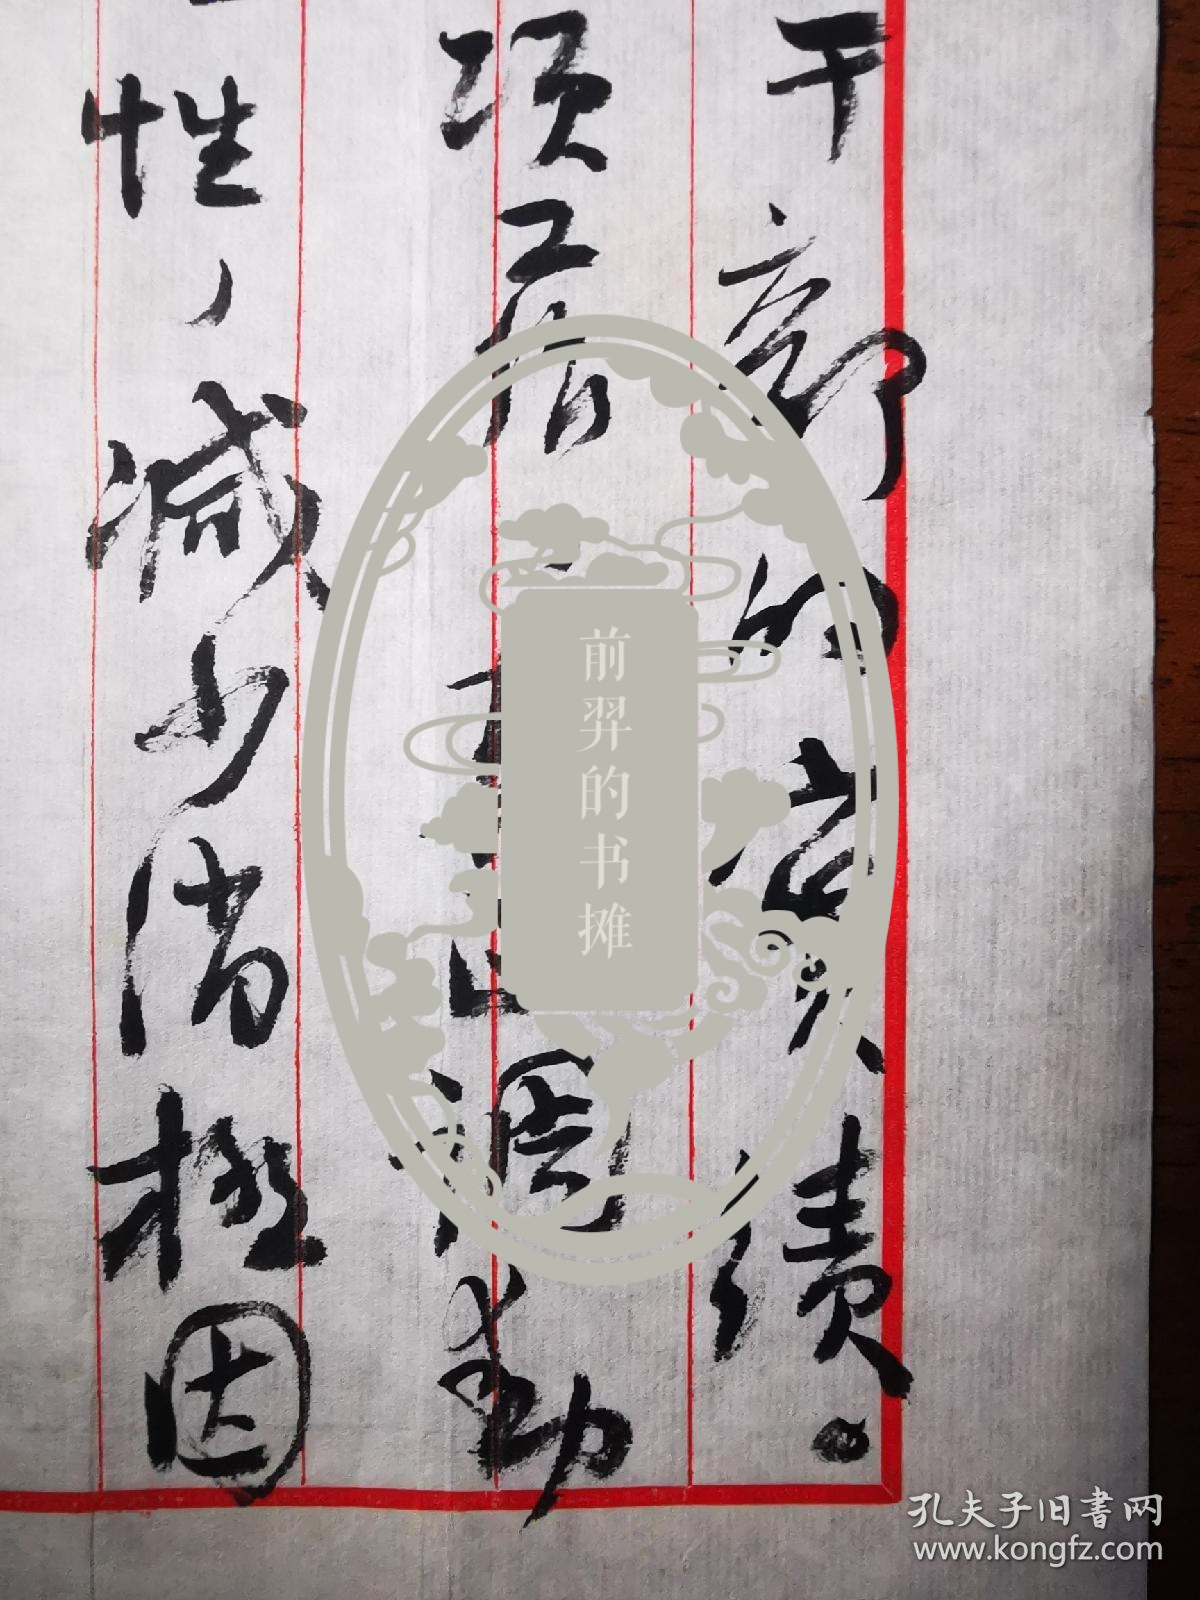 干部的实绩。
项工作
调动
性，减少消极因
前羿的书摊
孔夫子旧书网
www.kongfz.com